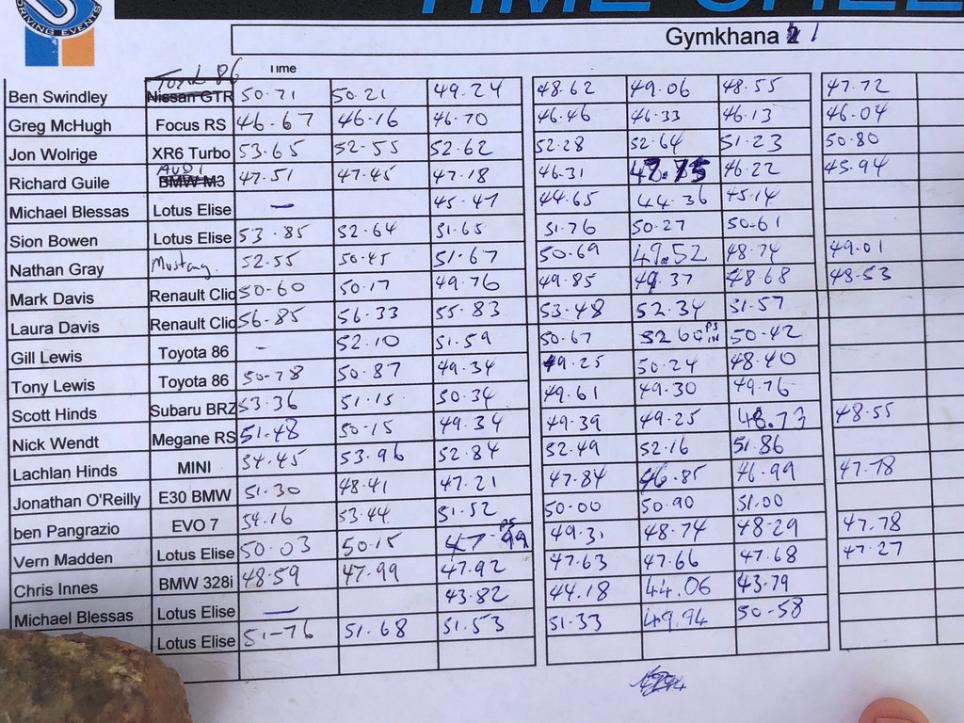 DRIVING EVENTS
TIME
Gymkhana 1
Time
Toyota 86
Ben Swindley Nissan GTR 50.71 50.21 49.24 48.62 49.06 48.55 47.72
Greg McHugh Focus RS 46.67 46.16 46.70 46.46 46.33 46.13 46.04
Jon Wolrige XR6 Turbo 53.65 52.55 52.62 52.28 52.64 51.23 50.80
AUDI
Richard Guile BMW M3 47.51 47.45 47.18 46.31 46.22 45.94
Michael Blessas Lotus Elise — 45.47 44.65 44.36 45.14
Sion Bowen Lotus Elise 53.85 52.64 51.65 51.76 50.27 50.61
Nathan Gray Mustang 52.55 50.45 51.67 50.69 49.52 48.74 49.01
Mark Davis Renault Clio 50-60 50.17 49.76 49.85 49.37 48.68 48.53
Laura Davis Renault Clio 56.85 56.33 55.83 53.48 52.34 51.57
Gill Lewis Toyota 86 - 52.10 51.59 50.67 50.42
Tony Lewis Toyota 86 50-78 50.87 49.34 49.25 50.24 48.40
Scott Hinds Subaru BRZ 53.36 51.15 50.34 49.61 49.30 49.76
Nick Wendt Megane RS 51.48 50-15 49.34 49.39 49.25 48.73 48.55
Lachlan Hinds MINI 54.45 53.96 52.84 52.49 52.16 51.86
Jonathan O'Reilly E30 BMW 51.30 48.41 47.21 47.84 46.85 46.99 47.18
ben Pangrazio EVO 7 54.16 53.44 51.52 50.00 50.90 51.00
Vern Madden Lotus Elise 50.03 50.15 47.99 49.31 48.74 48.29 47.78
Chris Innes BMW 328i 48.59 47.99 47.92 47.63 47.66 47.68 47.27
Michael Blessas Lotus Elise — 43.82 44.18 44.06 43.79
Lotus Elise 51-76 51.68 51.53 51.33 49.94 50-58